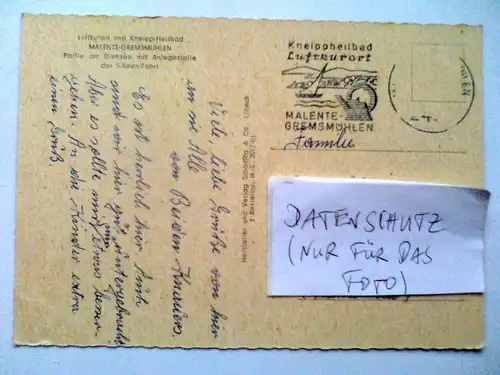 Luftkurort und Kneipp-Heilbad
MALENTE-GREMSMÜHLEN
Partie am Dieksee mit Anlegestelle
der 5-Seen-Fahrt
Viele, liebe Grüße von hier
an sie Alle
von Beiden
Es ist herrlich hier. Auch
sind wir hier gut untergebracht.
Aber es sollte nun etwas besser
gehen. An die Kinder extra
einen Gruß.
Hersteller und Verlag Schöning & Co Lübeck
Kneippheilbad
Luftkurort
MALENTE-
GREMSMÜHLEN
Familie
DATENSCHUTZ
(NUR FÜR DAS
FOTO)